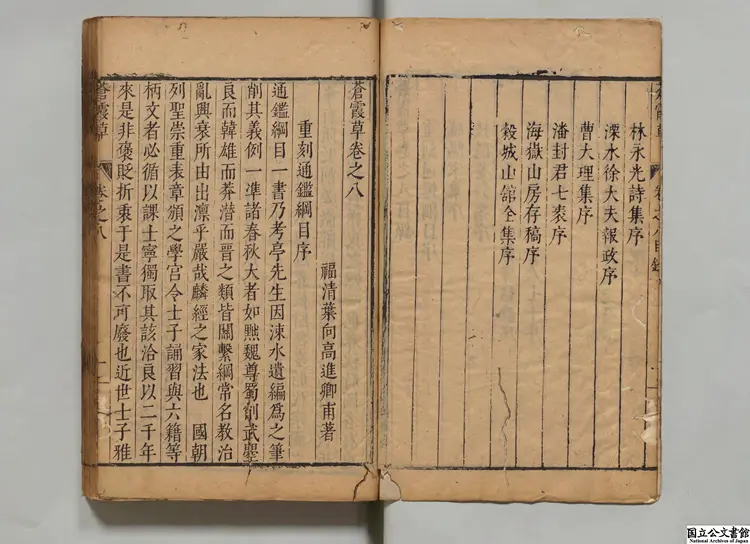 林永光詩集序
溧水徐大夫報政序
曹大理集序
潘封君七袠序
海嶽山房存稿序
穀城山舘全集序
蒼霞草
卷之八目錄
蒼霞草卷之八
福清葉向高進卿甫著
重刻通鑑綱目序
通鑑綱目一書乃考亭先生因涑水遺編爲之筆
削其義例一凖諸春秋大者如黜魏尊蜀削武鑿
良而韓雄而莽潜而晉之類皆關繫綱常名教治
亂興衰所由出凛乎嚴哉麟經之家法也 國朝
列聖崇重表章頒之學宮令士子誦習與六籍等
柄文者必循以課士寧獨取其該洽良以二千年
來是非褒貶折衷于是書不可廢也近世士子雅
蒼霞草
卷之八
一
国立公文書館
National Archives of Japan